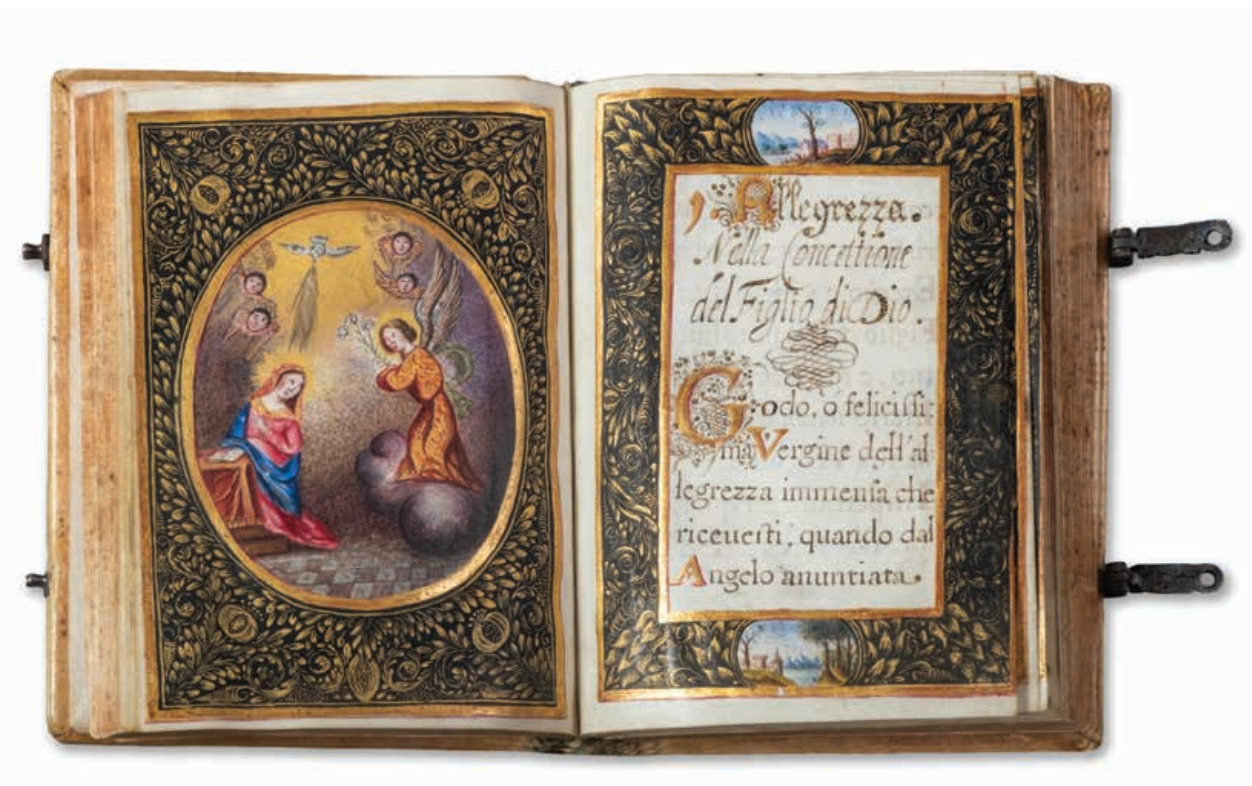 1. Allegrezza.
Nella Concettione
del Figlio di Dio.
Godo, o felicissi:
ma Vergine dell'al:
legrezza immensa che
riceuesti, quando dal
Angelo anuntiata.